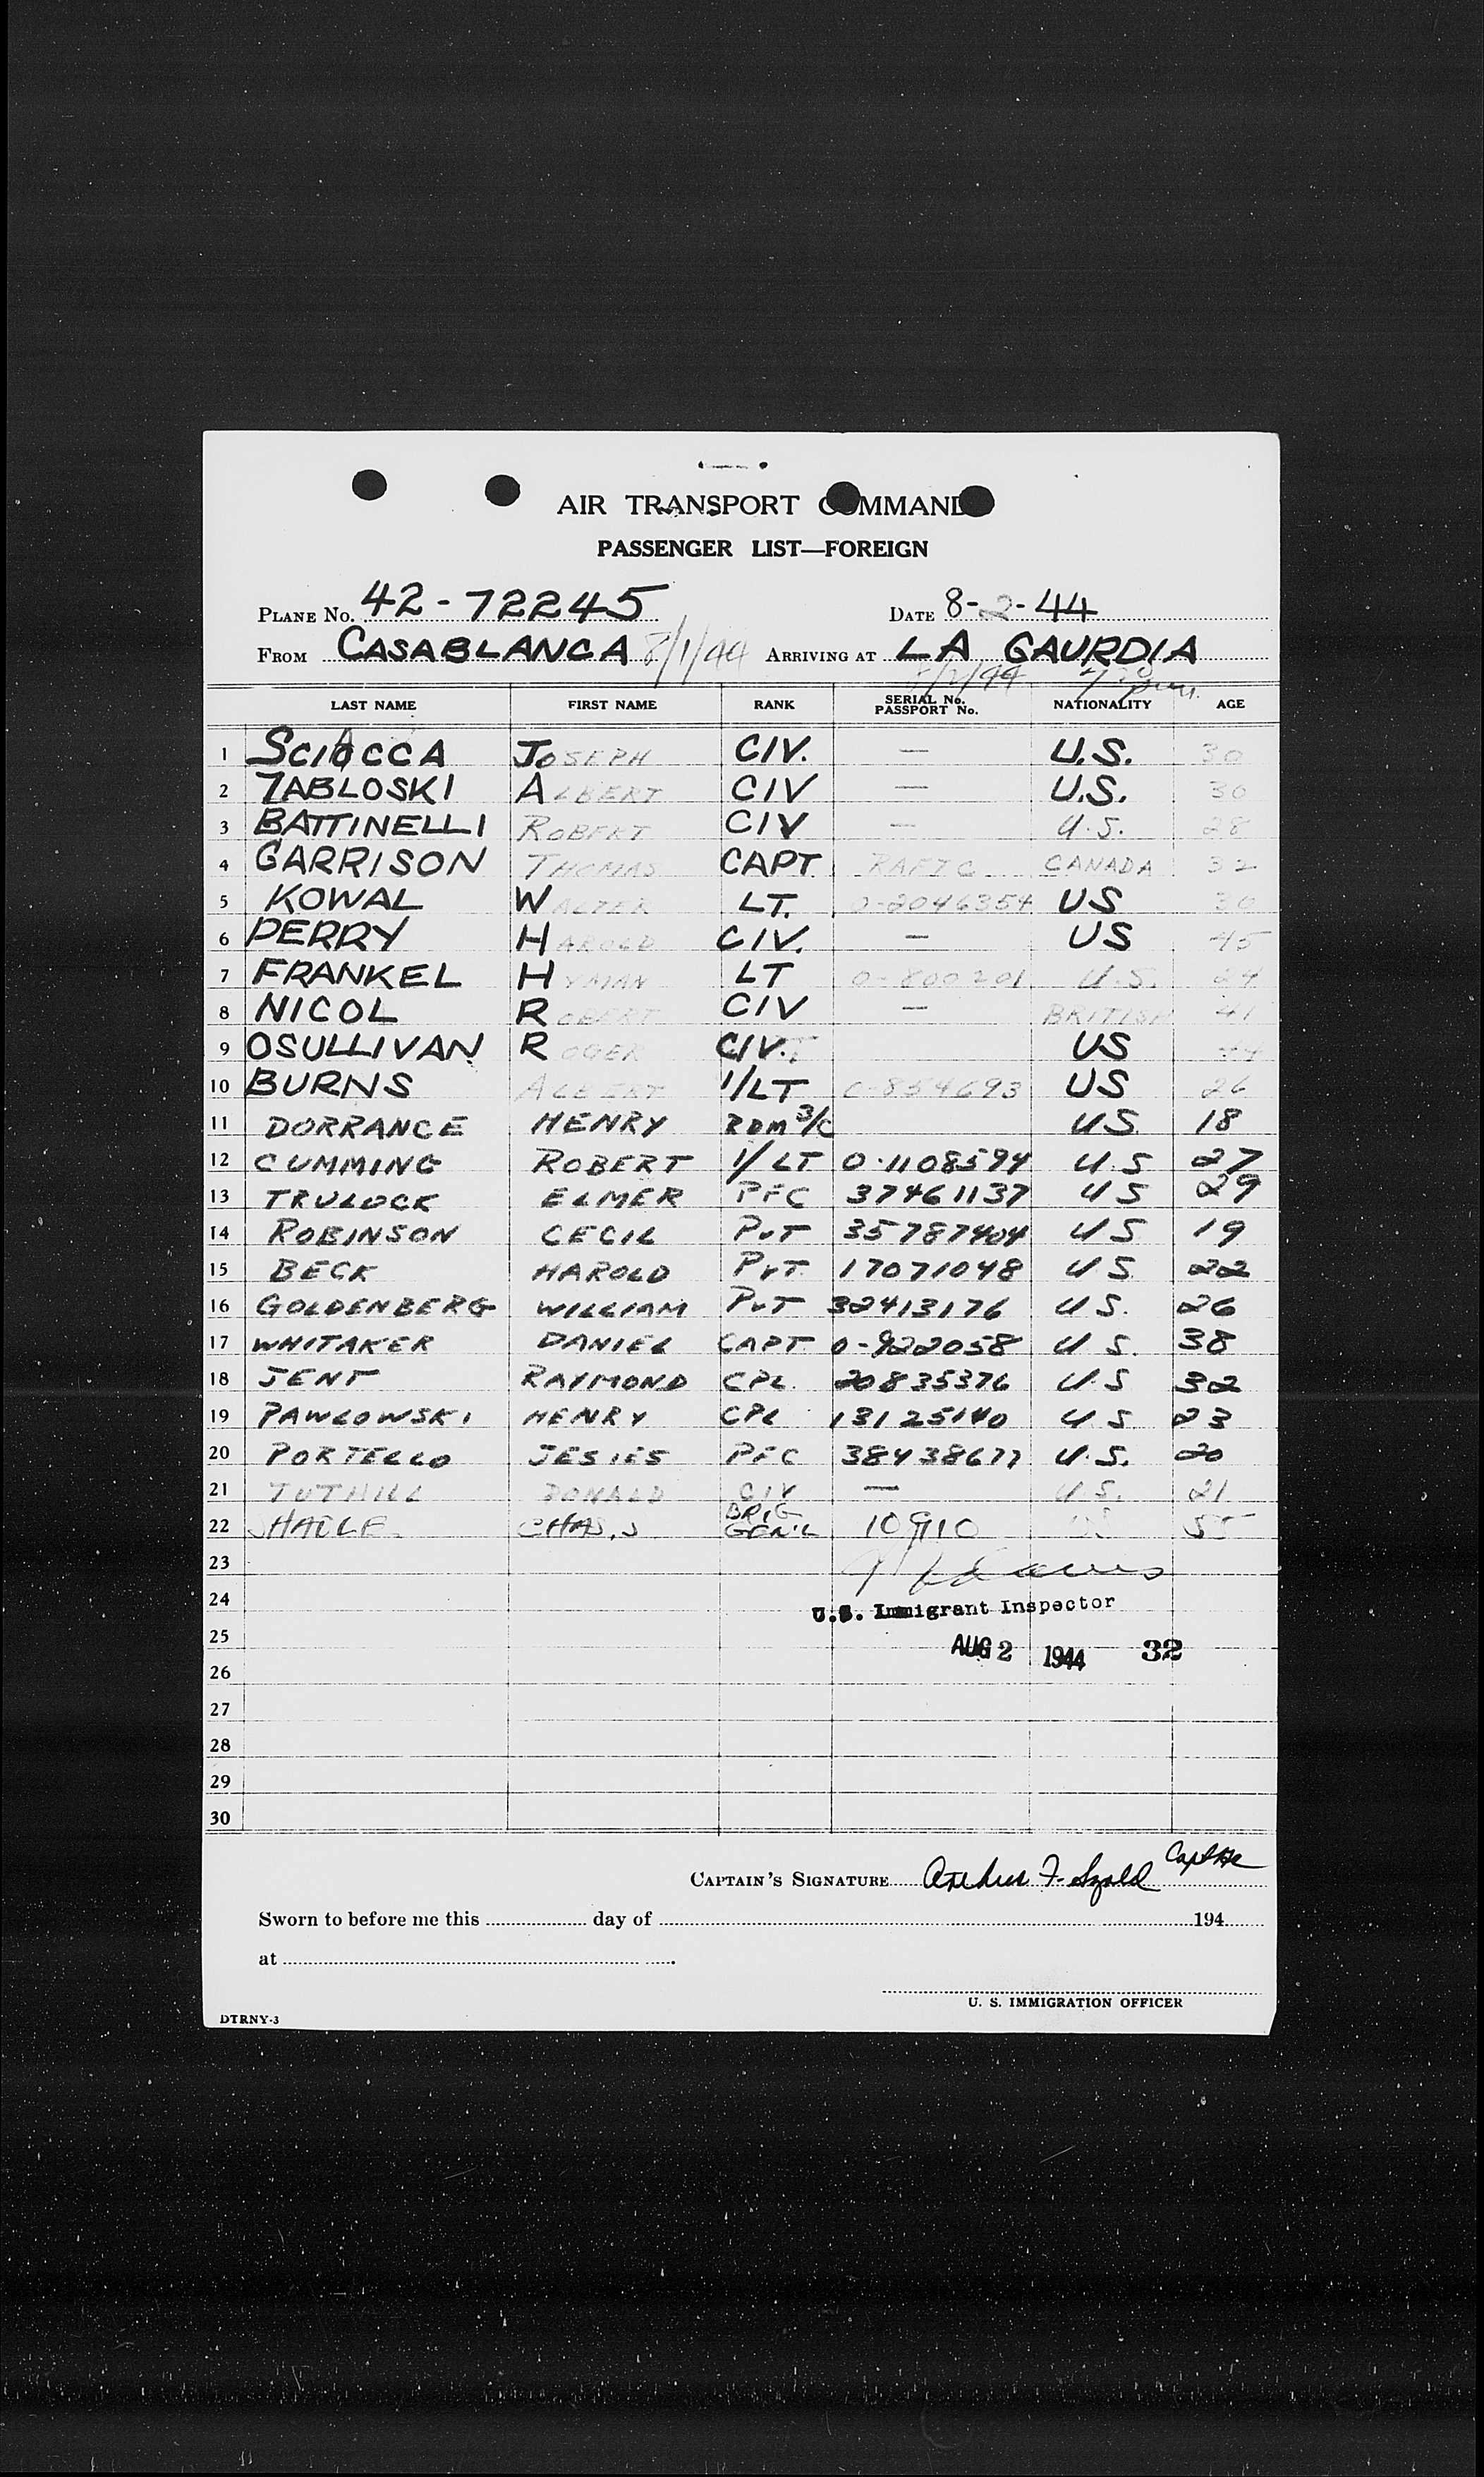 AIR TRANSPORT COMMAND
PASSENGER LIST—FOREIGN
PLANE No. 42-72245 DATE 8-2-44
FROM CASABLANCA 8/1/44 ARRIVING AT LA GAURDIA
8/2/44
LAST NAME FIRST NAME RANK SERIAL No. PASSPORT No. NATIONALITY AGE
1 SCIOCCA JOSEPH CIV. — U.S. 30
2 ZABLOSKI ALBERT CIV — U.S. 30
3 BATTINELLI ROBERT CIV — U.S. 28
4 GARRISON THOMAS CAPT. RAFTC CANADA 32
5 KOWAL WALTER LT. 0-2046354 US 30
6 PERRY HAROLD CIV. — US 45
7 FRANKEL HYMAN LT 0-800201 U.S. 24
8 NICOL ROBERT CIV — BRITISH 41
9 OSULLIVAN ROGER CIV. US
10 BURNS ALBERT 1/LT 0-854693 US 26
11 DORRANCE HENRY RDM 3/C US 18
12 CUMMING ROBERT 1/LT 0-1108594 U.S 27
13 TRULOCK ELMER PFC 37461137 US 29
14 ROBINSON CECIL PVT 35787404 US 19
15 BECK HAROLD PVT 17071048 US 22
16 GOLDENBERG WILLIAM PVT 32413176 U S. 26
17 WHITAKER DANIEL CAPT 0-922058 U S. 38
18 JENT RAYMOND CPL 20835376 U.S 32
19 PAWLOWSKI HENRY CPL 13125140 U.S 23
20 PORTELLO JESIES PFC 38438677 U.S. 20
21 TUTHILL DONALD CIV — U.S. 21
22 CHAS. J BRIG GEN'L 10910 US 55
23
24
U.S. Immigrant Inspector
25
AUG 2 1944 32
26
27
28
29
30
CAPTAIN'S SIGNATURE Arthur F. Capt AC
Sworn to before me this day of 194
at
U. S. IMMIGRATION OFFICER
DTRNY-3